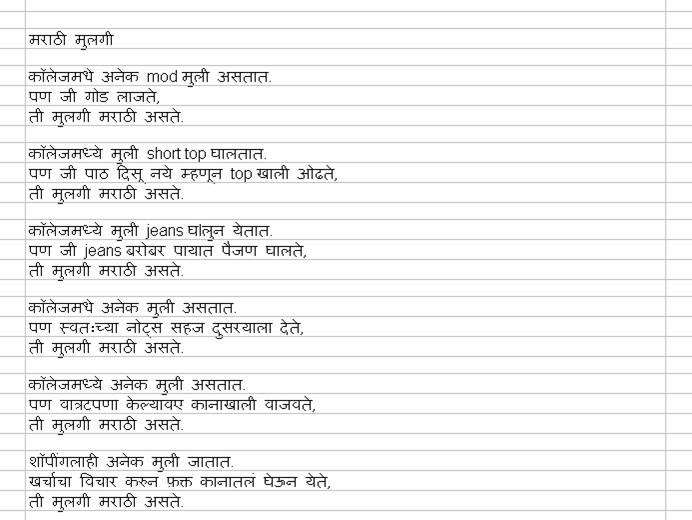 मराठी मुलगी
कॉलेजमधे अनेक mod मुली असतात.
पण जी गोड लाजते,
ती मुलगी मराठी असते.
कॉलेजमध्ये मुली short top घालतात.
पण जी पाठ दिसू नये म्हणून top खाली ओढते,
ती मुलगी मराठी असते.
कॉलेजमध्ये मुली jeans घालुन येतात.
पण जी jeans बरोबर पायात पैंजण घालते,
ती मुलगी मराठी असते.
कॉलेजमधे अनेक मुली असतात.
पण स्वतःच्या नोट्स सहज दुसरयाला देते,
ती मुलगी मराठी असते.
कॉलेजमध्ये अनेक मुली असतात.
पण वात्रटपणा केल्यावए कानाखाली वाजवते,
ती मुलगी मराठी असते.
शॉपींगलाही अनेक मुली जातात.
खर्चाचा विचार करुन फ़क्त कानातलं घेऊन येते,
ती मुलगी मराठी असते.